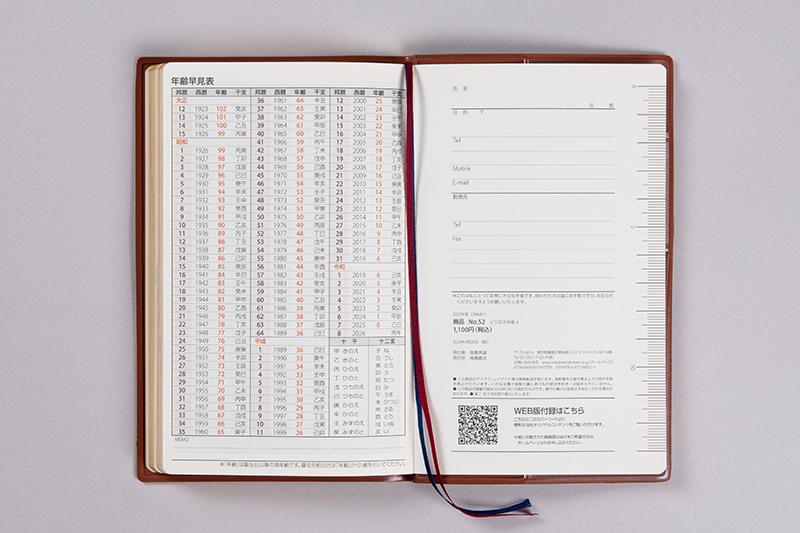 年齢早見表
邦暦 西暦 年齢 干支
大正
12 1923 102 癸亥
13 1924 101 甲子
14 1925 100 乙丑
15 1926 99 丙寅
昭和
1 1926 99 丙寅
2 1927 98 丁卯
3 1928 97 戊辰
4 1929 96 己巳
5 1930 95 庚午
6 1931 94 辛未
7 1932 93 壬申
8 1933 92 癸酉
9 1934 91 甲戌
10 1935 90 乙亥
11 1936 89 丙子
12 1937 88 丁丑
13 1938 87 戊寅
14 1939 86 己卯
15 1940 85 庚辰
16 1941 84 辛巳
17 1942 83 壬午
18 1943 82 癸未
19 1944 81 甲申
20 1945 80 乙酉
21 1946 79 丙戌
22 1947 78 丁亥
23 1948 77 戊子
24 1949 76 己丑
25 1950 75 庚寅
26 1951 74 辛卯
27 1952 73 壬辰
28 1953 72 癸巳
29 1954 71 甲午
30 1955 70 乙未
31 1956 69 丙申
32 1957 68 丁酉
33 1958 67 戊戌
34 1959 66 己亥
35 1960 65 庚子
邦暦 西暦 年齢 干支
36 1961 64 辛丑
37 1962 63 壬寅
38 1963 62 癸卯
39 1964 61 甲辰
40 1965 60 乙巳
41 1966 59 丙午
42 1967 58 丁未
43 1968 57 戊申
44 1969 56 己酉
45 1970 55 庚戌
46 1971 54 辛亥
47 1972 53 壬子
48 1973 52 癸丑
49 1974 51 甲寅
50 1975 50 乙卯
51 1976 49 丙辰
52 1977 48 丁巳
53 1978 47 戊午
54 1979 46 己未
55 1980 45 庚申
56 1981 44 辛酉
57 1982 43 壬戌
58 1983 42 癸亥
59 1984 41 甲子
60 1985 40 乙丑
61 1986 39 丙寅
62 1987 38 丁卯
63 1988 37 戊辰
64 1989 36 己巳
平成
1 1989 36 己巳
2 1990 35 庚午
3 1991 34 辛未
4 1992 33 壬申
5 1993 32 癸酉
6 1994 31 甲戌
7 1995 30 乙亥
8 1996 29 丙子
9 1997 28 丁丑
10 1998 27 戊寅
11 1999 26 己卯
邦暦 西暦 年齢 干支
12 2000 25 庚辰
13 2001 24 辛巳
14 2002 23 壬午
15 2003 22 癸未
16 2004 21 甲申
17 2005 20 乙酉
18 2006 19 丙戌
19 2007 18 丁亥
20 2008 17 戊子
21 2009 16 己丑
22 2010 15 庚寅
23 2011 14 辛卯
24 2012 13 壬辰
25 2013 12 癸巳
26 2014 11 甲午
27 2015 10 乙未
28 2016 9 丙申
29 2017 8 丁酉
30 2018 7 戊戌
31 2019 6 己亥
令和
1 2019 6 己亥
2 2020 5 庚子
3 2021 4 辛丑
4 2022 3 壬寅
5 2023 2 癸卯
6 2024 1 甲辰
7 2025 0 乙巳
8 2026 丙午
十干 十二支
甲 きのえ
乙 きのと
丙 ひのえ
丁 ひのと
戊 つちのえ
己 つちのと
庚 かのえ
辛 かのと
壬 みずのえ
癸 みずのと
子 ね
丑 うし
寅 とら
卯 う
辰 たつ
巳 み
午 うま
未 ひつじ
申 さる
酉 とり
戌 いぬ
亥 い
MEMO
※「年齢」は誕生日以降の満年齢です。誕生日前の方は「年齢」から1歳を引いてください。
氏 名
生 態
住 所 〒
Tel
Mobile
E-mail
勤務先
Tel
Fax
商品 No.52 ビジネス手帳4
1,100円(税込)
WEB版付録はこちら
0
5
10